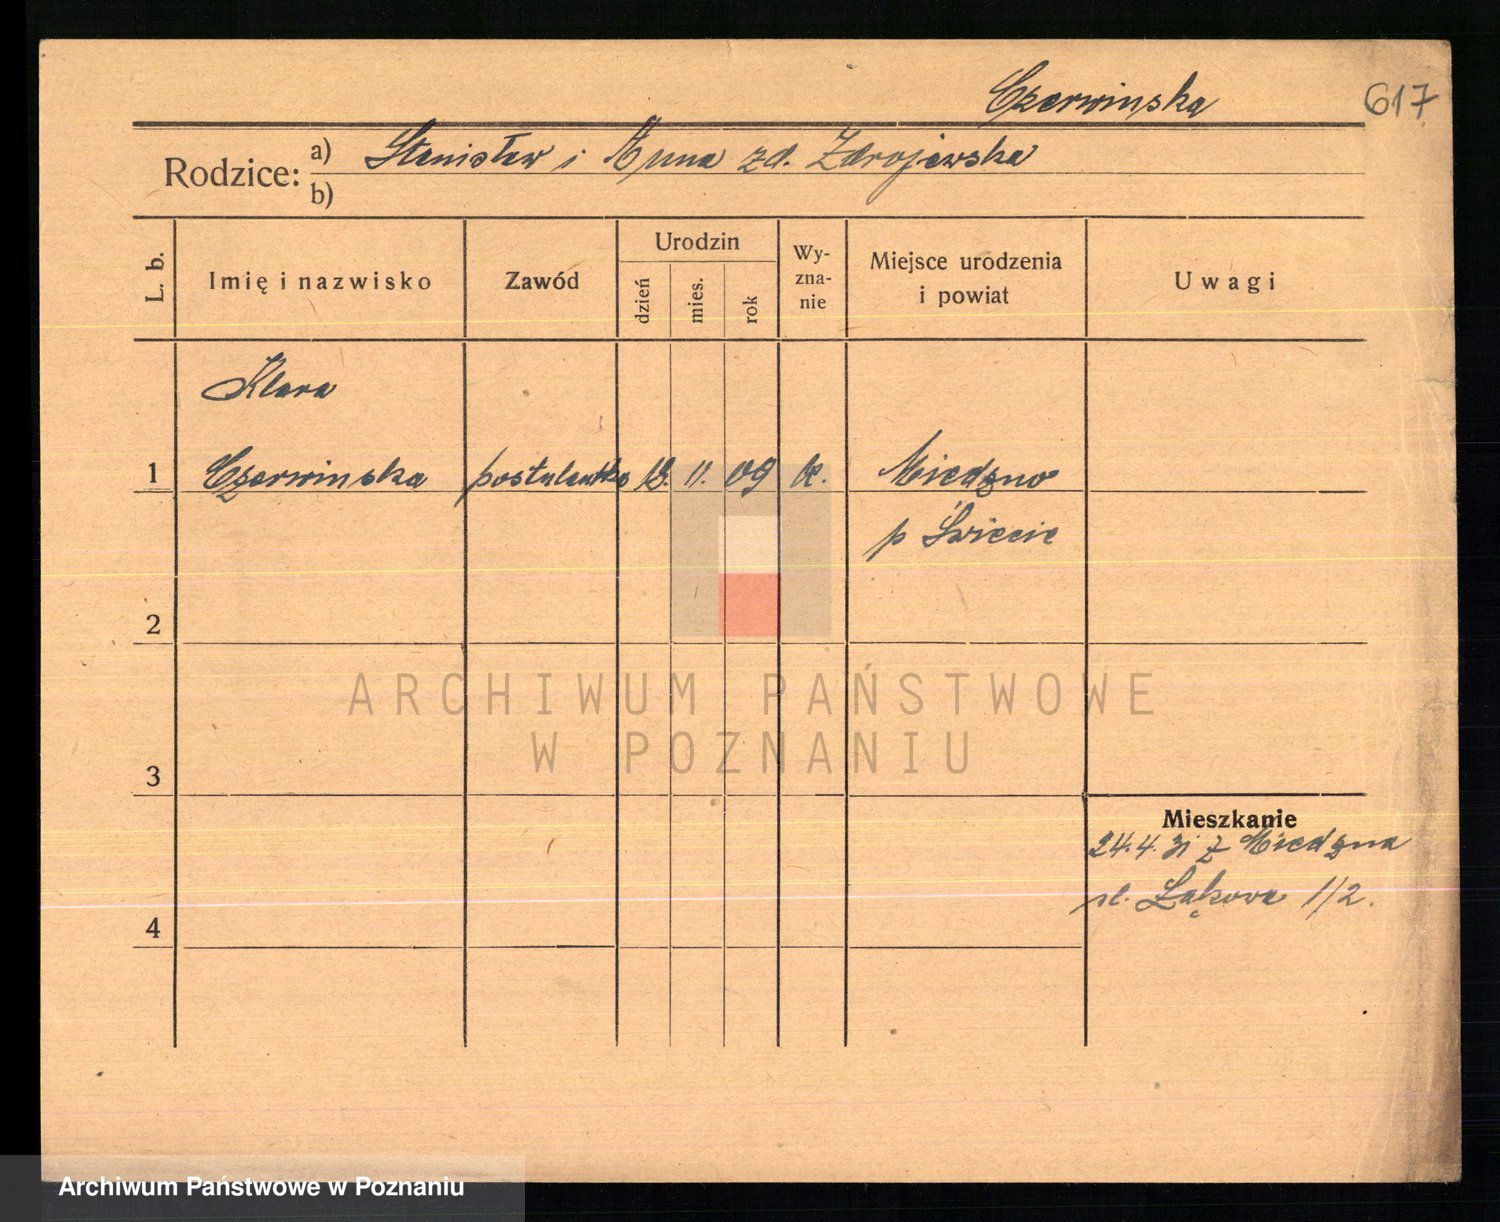 Czerwinska 617
Rodzice: a) Stanisław i Anna zd. Zdrojewska
b)
L. b. Imię i nazwisko Zawód Urodzin dzień mies. rok Wy-zna-nie Miejsce urodzenia i powiat Uwagi
Klara
1 Czerwinska postulantka 13. 11. 09 k. Miedzno
p Świecie
2
ARCHIWUM PAŃSTWOWE
W POZNANIU
3
Mieszkanie
24.4.31 z Miedzna
ul. Łąkowa 1/2.
4
Archiwum Państwowe w Poznaniu